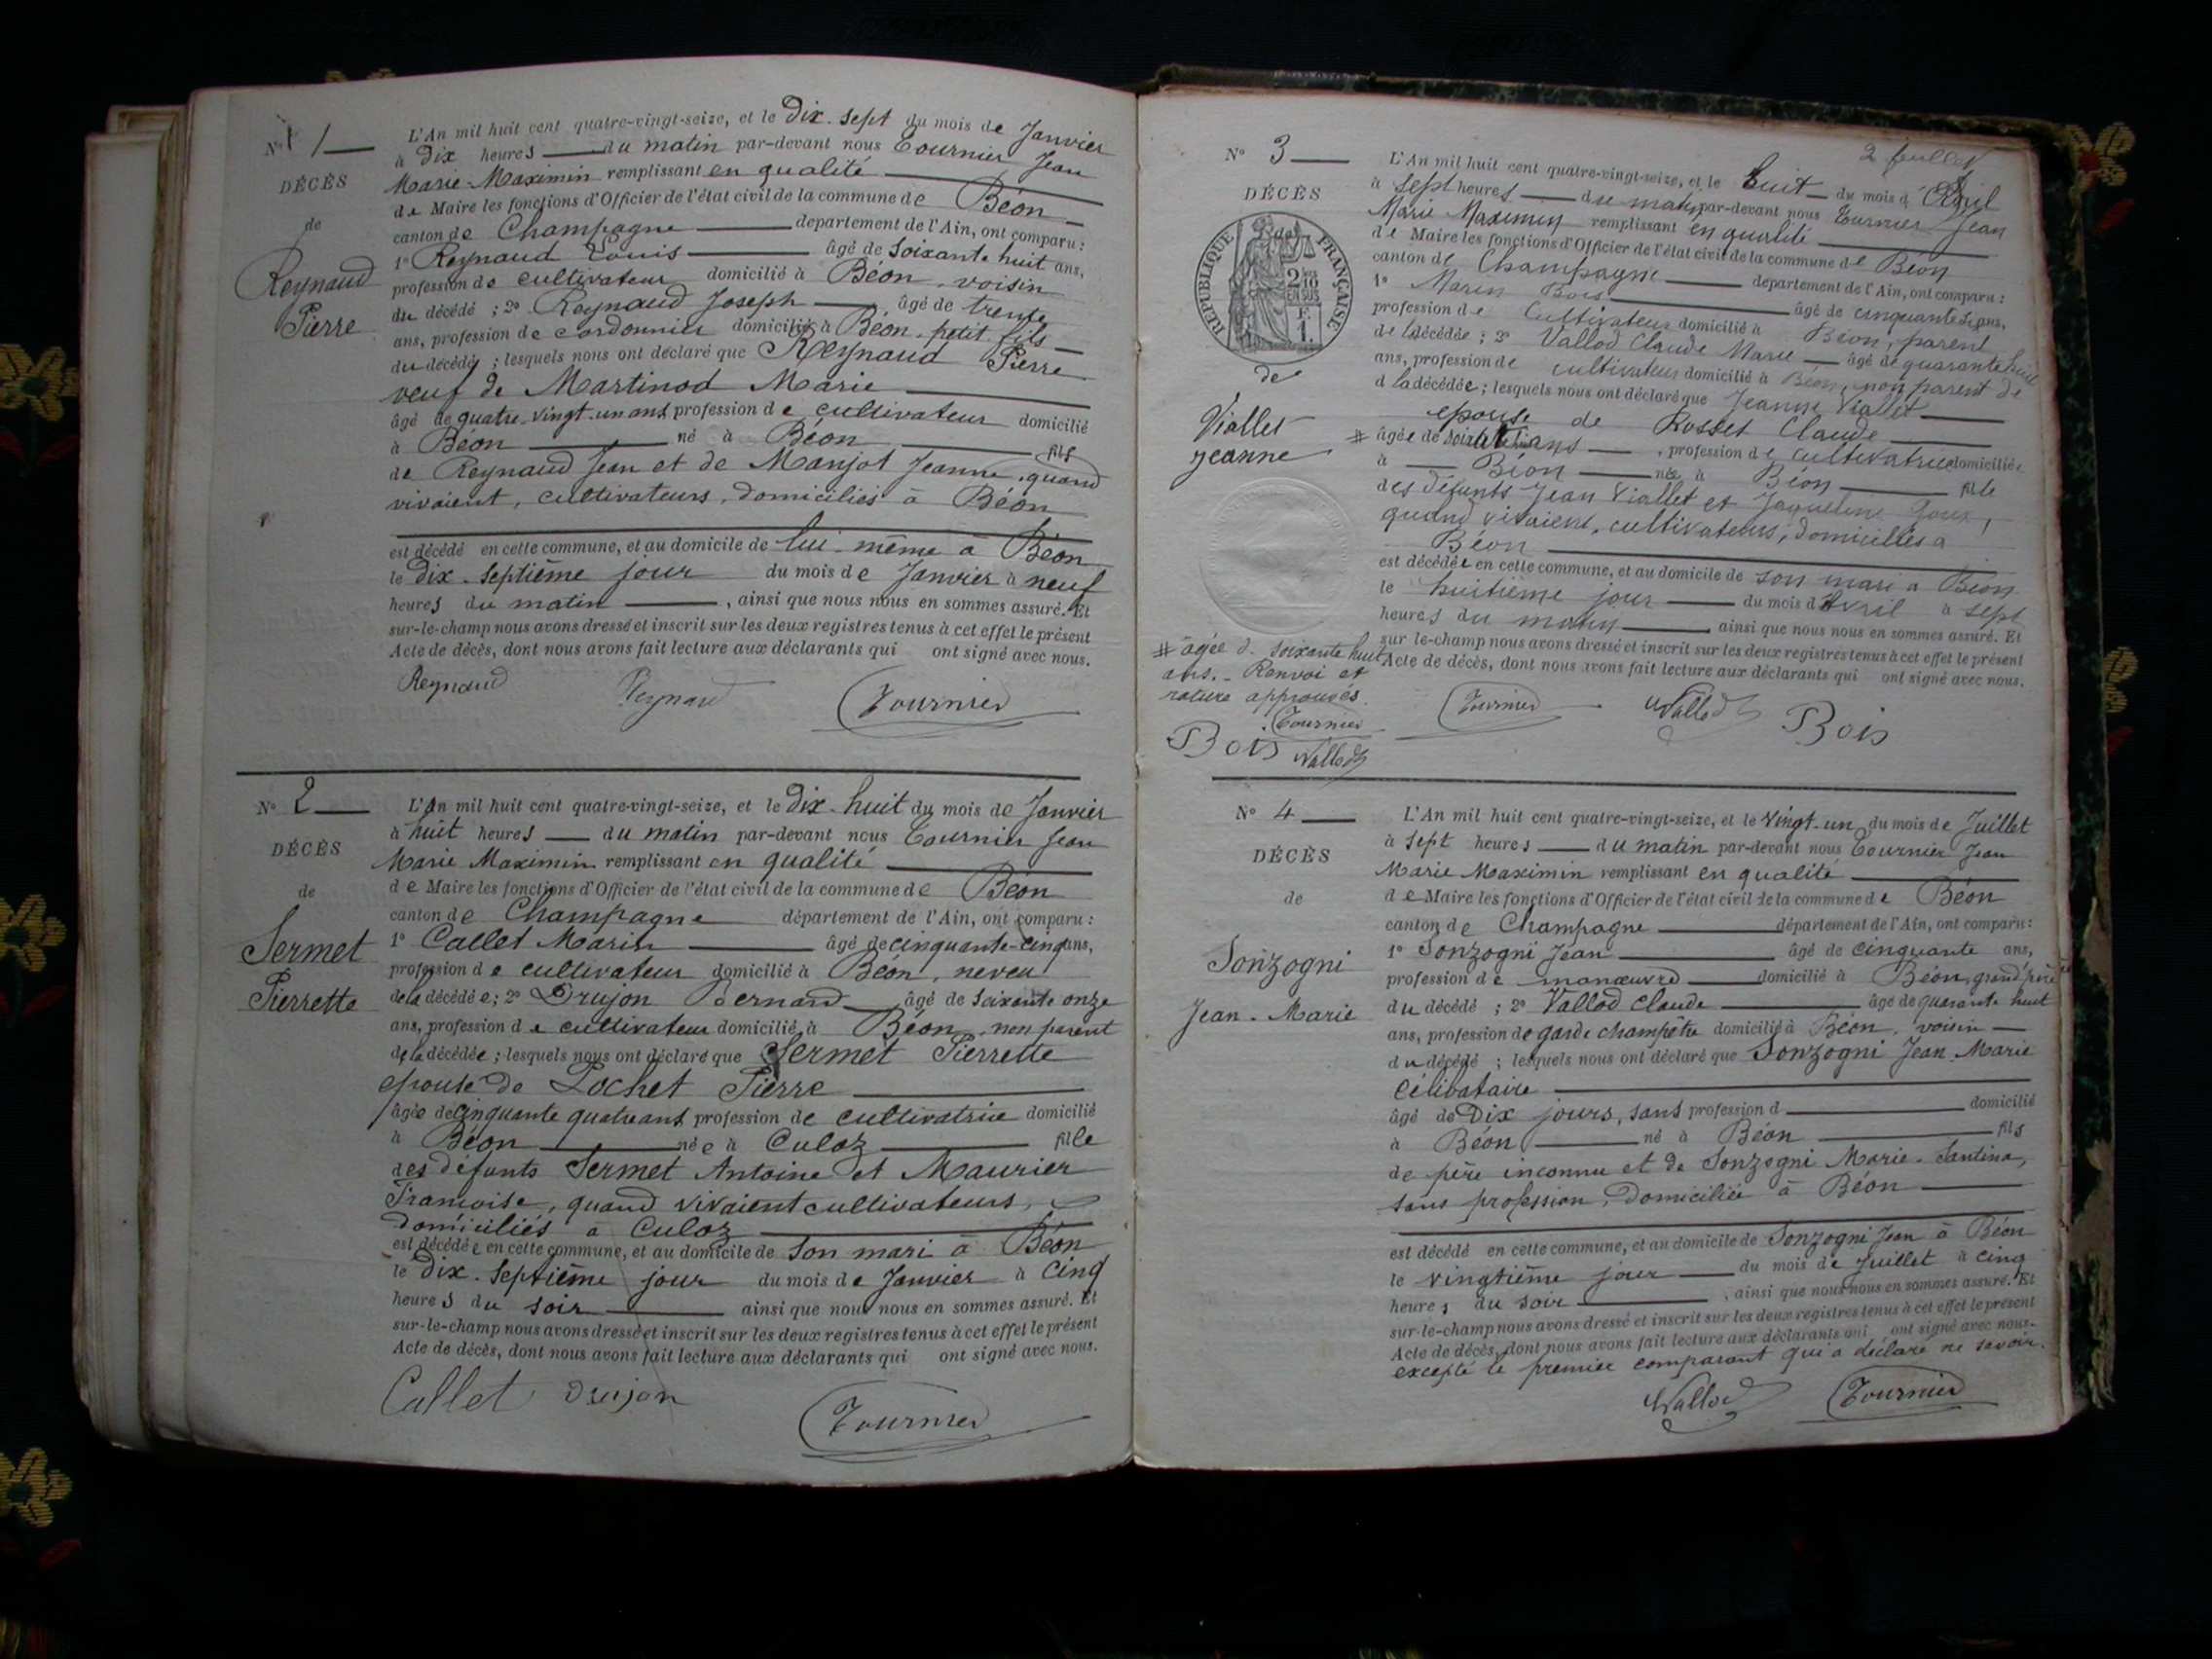 N° 1
DÉCÈS
de
Reynaud
Pierre
L'An mil huit cent quatre-vingt-seize, et le Dix-sept du mois de Janvier
à Dix heures du matin par-devant nous Tournier Jean
Marie-Maximin remplissant en qualité
de Maire les fonctions d'Officier de l'état civil de la commune de Béon
canton de Champagne département de l'Ain, ont comparu :
1° Reynaud Louis âgé de soixante huit ans,
profession de cultivateur domicilié à Béon, voisin
du décédé ; 2° Reynaud Joseph âgé de trente
ans, profession de cordonnier domicilié à Béon, petit fils
du décédé ; lesquels nous ont déclaré que Reynaud Pierre
veuf de Martinod Marie
âgé de quatre-vingt-un ans profession de cultivateur domicilié
à Béon né à Béon fils
de Reynaud Jean et de Manjot Jeanne, quand
vivaient, cultivateurs, domiciliés à Béon
est décédé en cette commune, et au domicile de lui-même à Béon
le Dix-septième jour du mois de Janvier à neuf
heures du matin, ainsi que nous nous en sommes assuré. Et
sur-le-champ nous avons dressé et inscrit sur les deux registres tenus à cet effet le présent
Acte de décès, dont nous avons fait lecture aux déclarants qui ont signé avec nous.
Reynaud Reynaud Tournier
N° 2
DÉCÈS
de
Sermet
Pierrette
L'An mil huit cent quatre-vingt-seize, et le Dix-huit du mois de Janvier
à huit heures du matin par-devant nous Tournier Jean
Marie Maximin remplissant en qualité
de Maire les fonctions d'Officier de l'état civil de la commune de Béon
canton de Champagne département de l'Ain, ont comparu :
1° Callet Marin âgé de cinquante-cinq ans,
profession de cultivateur domicilié à Béon, neveu
de la décédée ; 2° Drujon Bernard âgé de soixante onze
ans, profession de cultivateur domicilié à Béon, non parent
de la décédée ; lesquels nous ont déclaré que Sermet Pierrette
épouse de Pochet Pierre
âgée de cinquante quatre ans profession de cultivatrice domicilié
à Béon née à Culoz fille
des défunts Sermet Antoine et Maurier
Françoise, quand vivaient cultivateurs,
domiciliés à Culoz
est décédée en cette commune, et au domicile de son mari à Béon
le Dix-septième jour du mois de Janvier à cinq
heures du soir ainsi que nous nous en sommes assuré. Et
sur-le-champ nous avons dressé et inscrit sur les deux registres tenus à cet effet le présent
Acte de décès, dont nous avons fait lecture aux déclarants qui ont signé avec nous.
Callet Drujon Tournier
2
N° 3
DÉCÈS
RÉPUBLIQUE FRANÇAISE
2/10 EN SUS
F. 1.
de
Viallet
Jeanne
L'An mil huit cent quatre-vingt-seize, et le huit du mois d'Avril
à sept heures du matin par-devant nous Tournier Jean
Marie Maximin remplissant en qualité
de Maire les fonctions d'Officier de l'état civil de la commune de Béon
canton de Champagne département de l'Ain, ont comparu :
1° Marin Bois âgé de cinquante ans,
profession de Cultivateur domicilié à Béon, parent
de la décédée ; 2° Vallod Claude Marie âgé de quarante huit
ans, profession de cultivateur domicilié à Béon, non parent de
d la décédée ; lesquels nous ont déclaré que Jeanne Viallet
epouse de Rosset Claude
# âgée de ans, profession de cultivatrice domiciliée
à Béon née à Béon fille
des défunts Jean Viallet et Jaqueline Goux,
quand vivaient, cultivateurs, domiciliés à
Béon
est décédée en cette commune, et au domicile de son mari à Béon
le huitième jour du mois d'Avril à sept
heures du matin ainsi que nous nous en sommes assuré. Et
sur le-champ nous avons dressé et inscrit sur les deux registres tenus à cet effet le présent
Acte de décès, dont nous avons fait lecture aux déclarants qui ont signé avec nous.
# âgée d. soixante huit
ans. - Renvoi et
rature approuvés.
Tournier
Bois Vallod
Tournier Vallod Bois
N° 4
DÉCÈS
de
Sonzogni
Jean-Marie
L'An mil huit cent quatre-vingt-seize, et le vingt-un du mois de Juillet
à sept heures du matin par-devant nous Tournier Jean
Marie Maximin remplissant en qualité
de Maire les fonctions d'Officier de l'état civil de la commune de Béon
canton de Champagne département de l'Ain, ont comparu :
1° Sonzogni Jean âgé de cinquante ans,
profession de manœuvre domicilié à Béon, grand'père
du décédé ; 2° Vallod Claude âgé de quarante huit
ans, profession de garde champêtre domicilié à Béon, voisin
du décédé ; lesquels nous ont déclaré que Sonzogni Jean Marie
célibataire
âgé de Dix jours, sans profession d domicilié
à Béon né à Béon fils
de père inconnu et de Sonzogni Marie-Santina,
sans profession, domiciliée à Béon
est décédé en cette commune, et au domicile de Sonzogni Jean à Béon
le vingtième jour du mois de Juillet à cinq
heures du soir, ainsi que nous nous en sommes assuré. Et
sur-le-champ nous avons dressé et inscrit sur les deux registres tenus à cet effet le présent
Acte de décès, dont nous avons fait lecture aux déclarants qui ont signé avec nous.
excepté le premier comparant qui a déclaré ne savoir.
Vallod Tournier